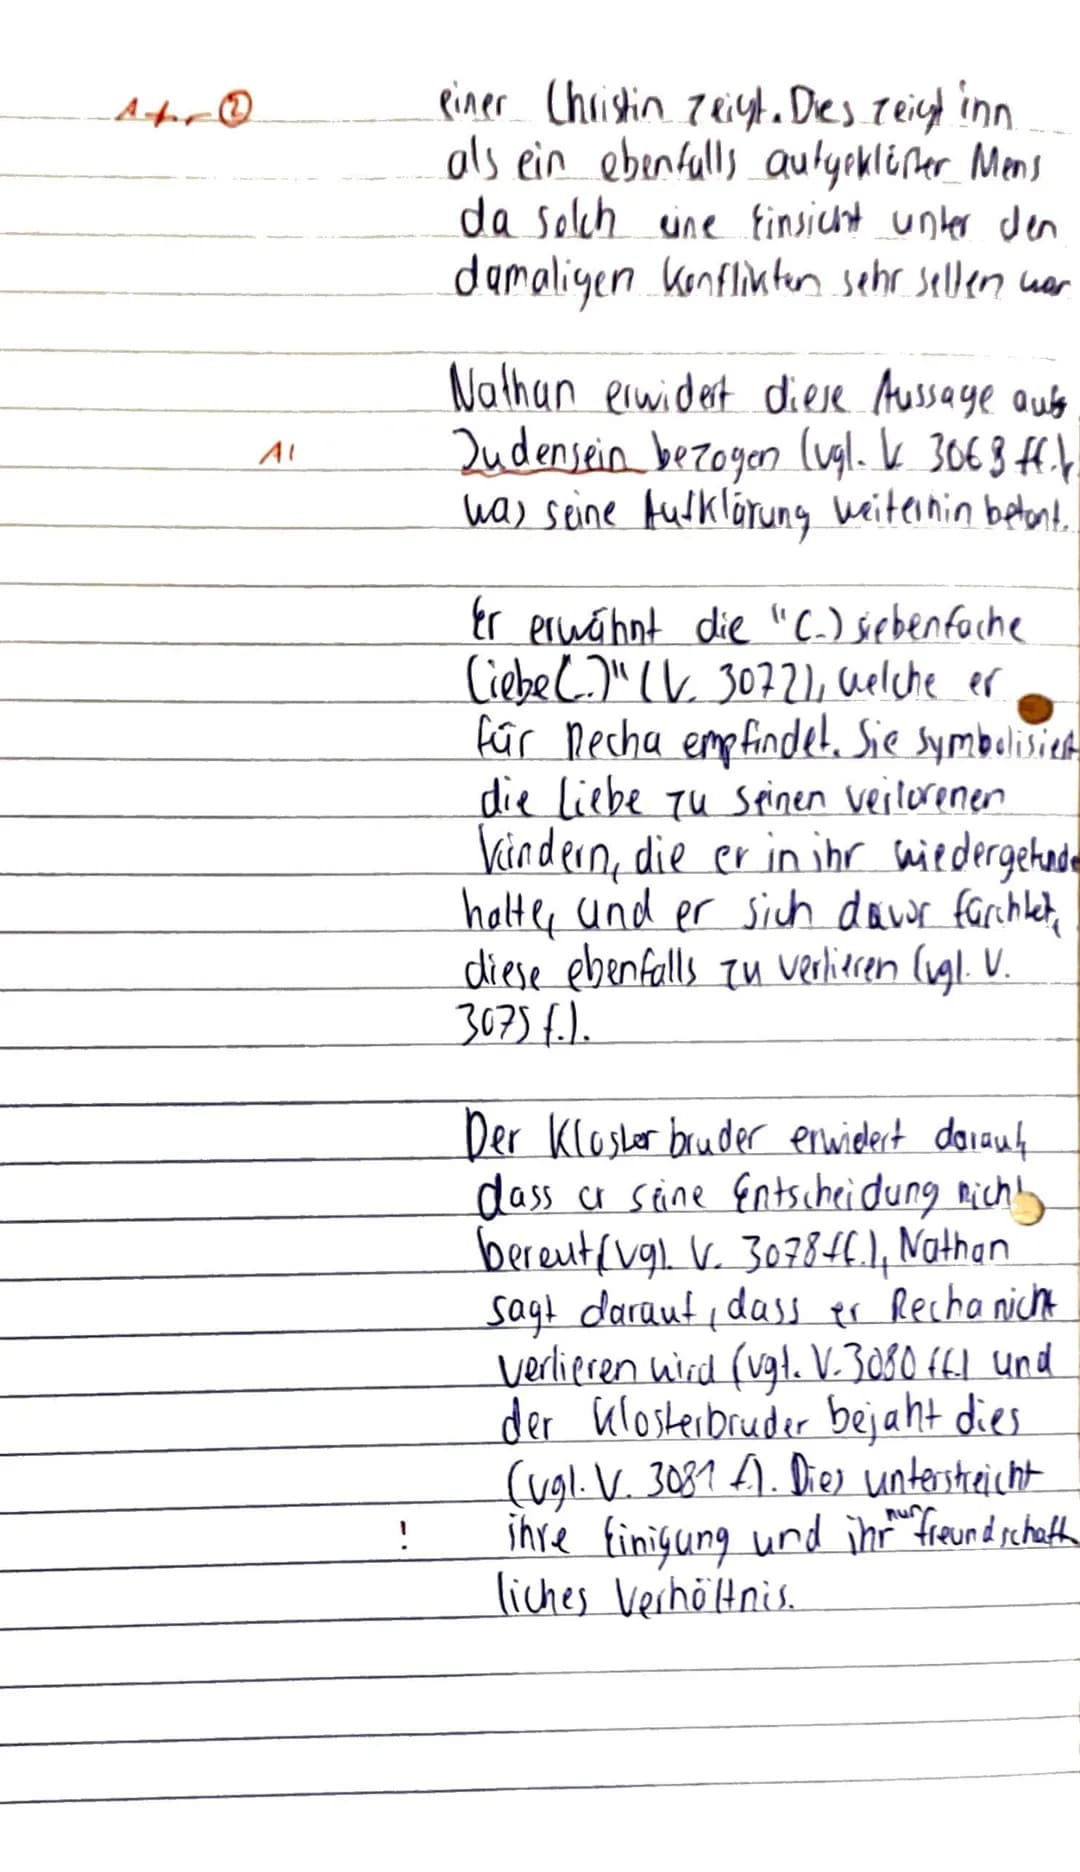 einer Christin zeigt. Dies zeigt inn
als ein ebenfalls aufgeklärter Mens
da solch eine Einsicht unter den
damaligen Konflikten sehr selten war
Nathan erwidert diese Aussage aufs
A1 Judensein bezogen (vgl. V. 3068 ff.),
was seine Aufklärung weiterhin betont.
Er erwähnt die "(..) siebenfache
Liebe (..)" (V. 3072), welche er
für Recha empfindet. Sie symbolisiert
die Liebe zu seinen verlorenen
Kindern, die er in ihr wiedergefunde
hatte, und er sich davor fürchtet,
diese ebenfalls zu verlieren (vgl. V.
3075 f.).
Der Klosterbruder erwidert darauf,
dass er seine Entscheidung nicht
bereut (vgl. V. 3078 ff.), Nathan
sagt darauf, dass er Recha nicht
verlieren wird (vgl. V. 3080 ff.) und
der Klosterbruder bejaht dies
(vgl. V. 3081 f.). Dies unterstreicht
! ihre Einigung und ihr nur freundschaft
liches Verhältnis.